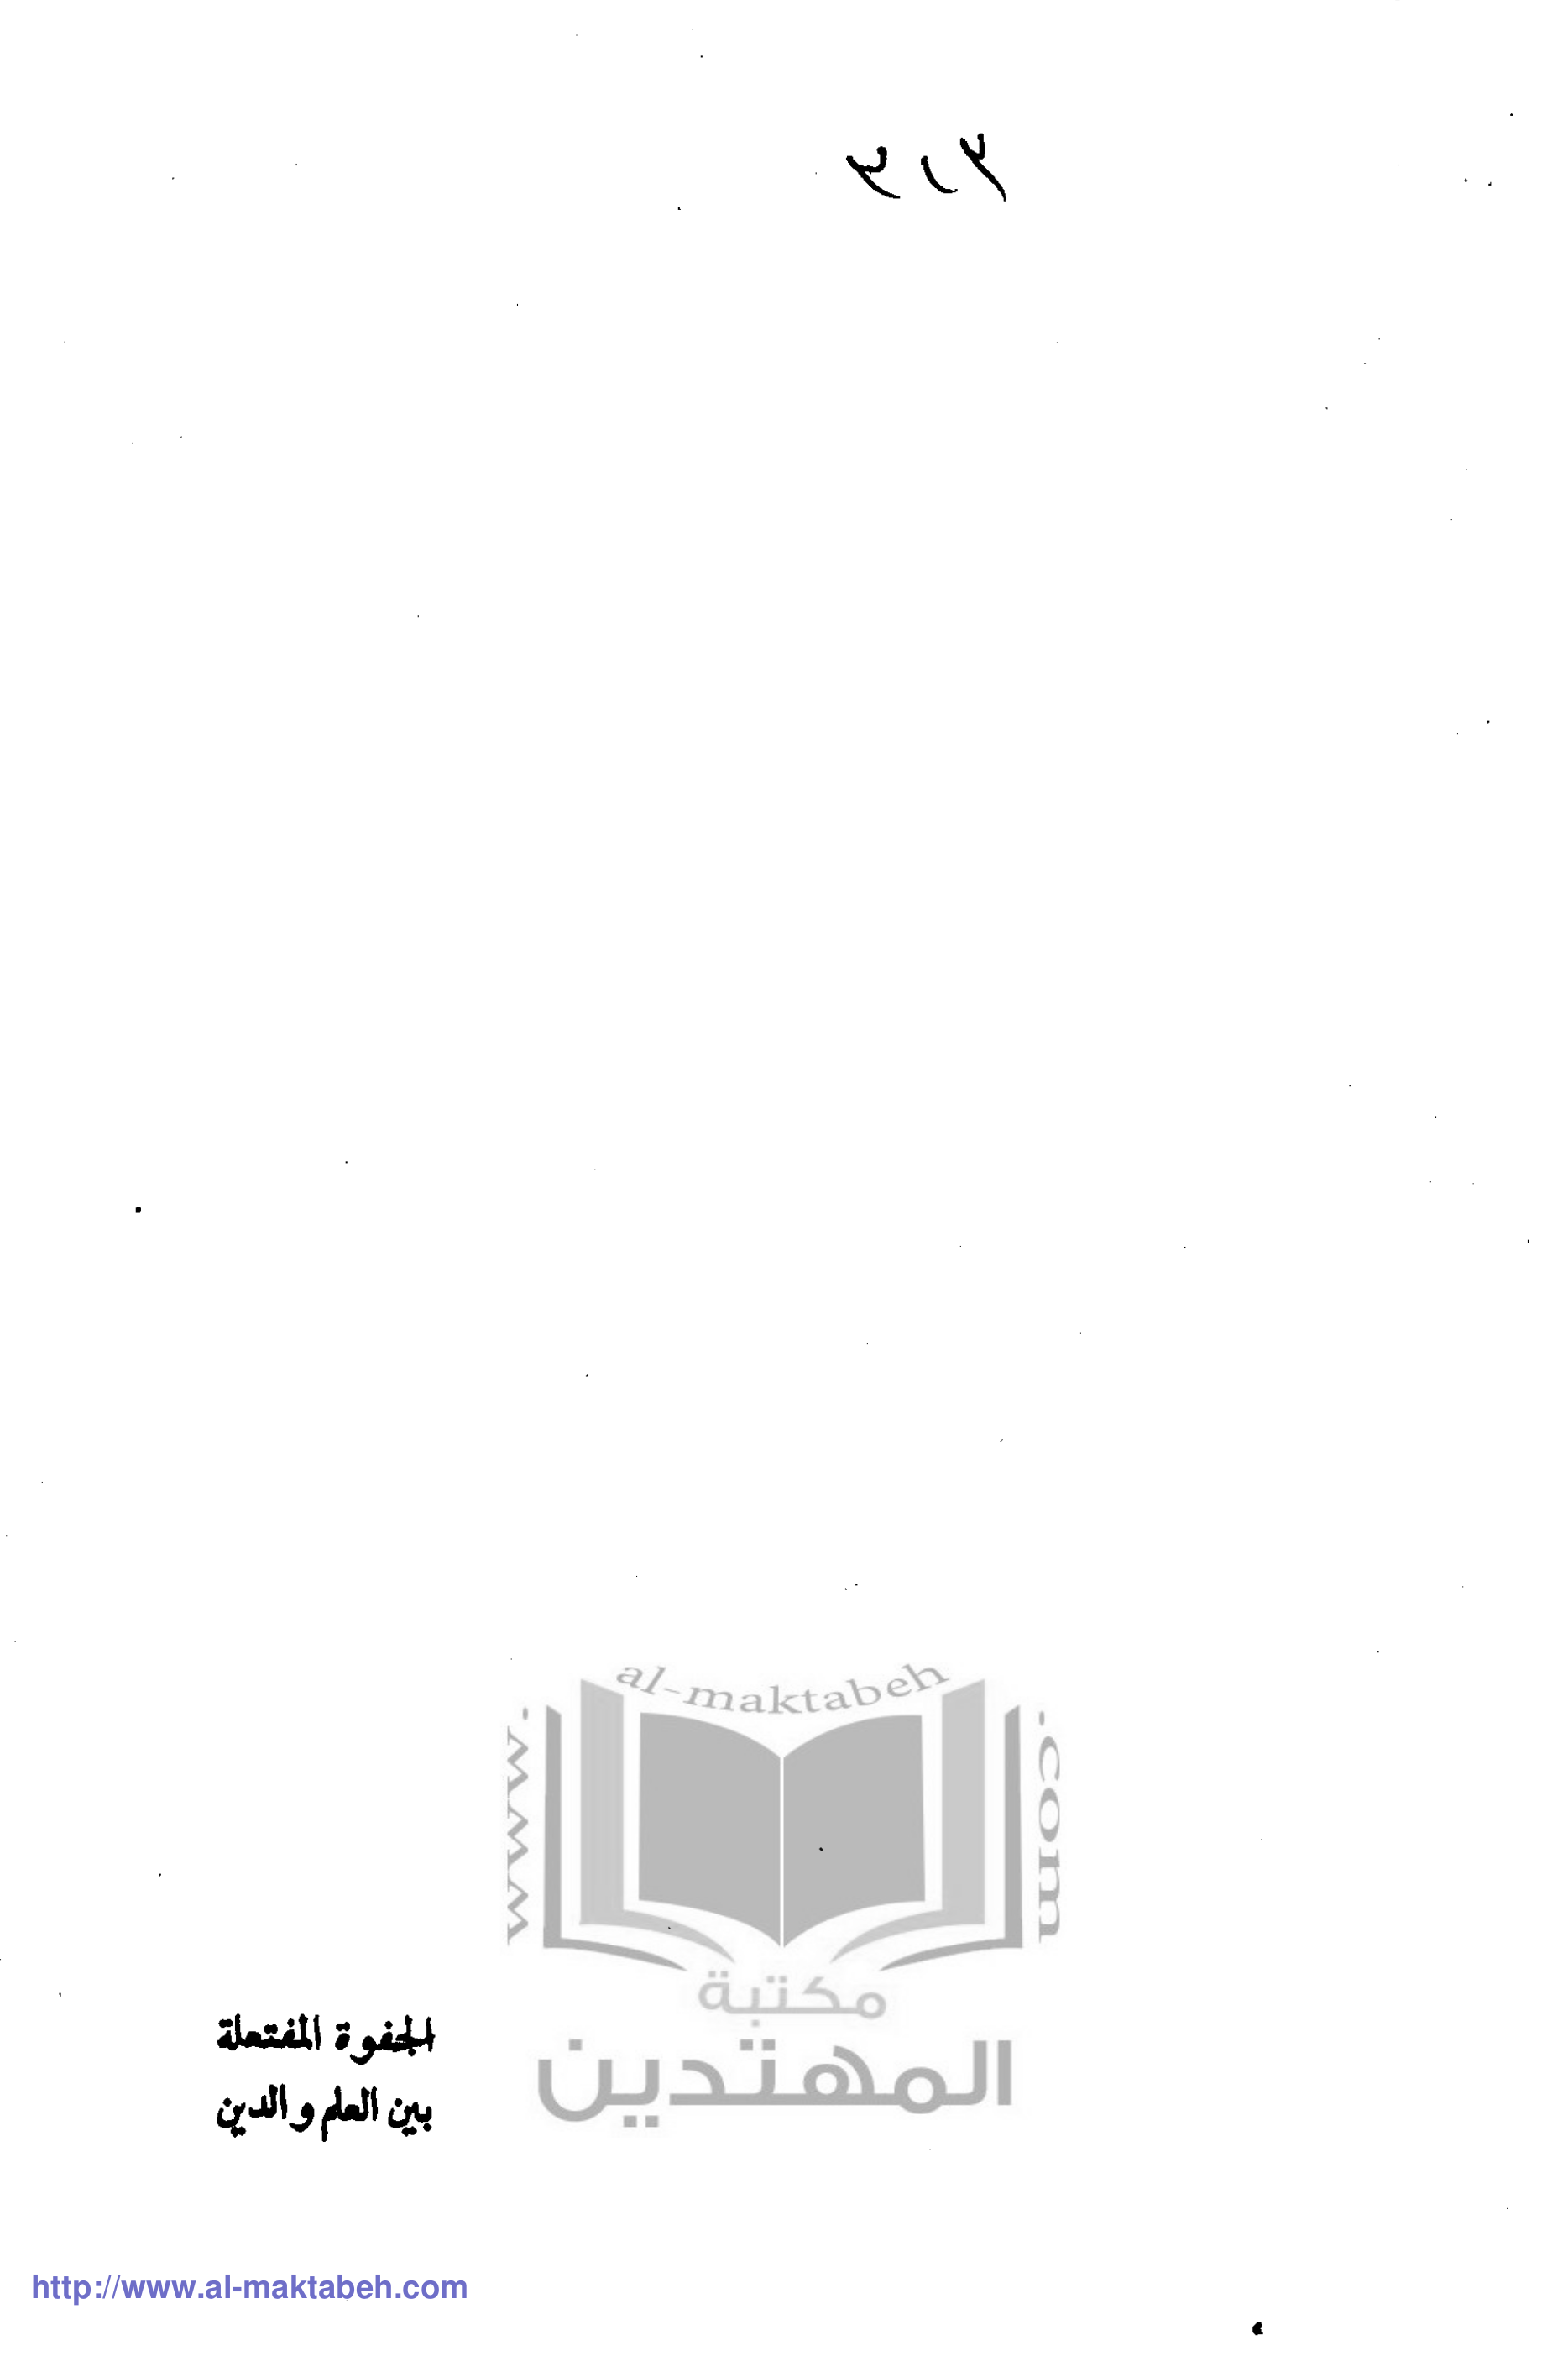 ٢١٢
al-maktabeh
www.
.com
مكتبة
المهتدين
الجفوة المفتعلة
بين العلم والدين
http://www.al-maktabeh.com